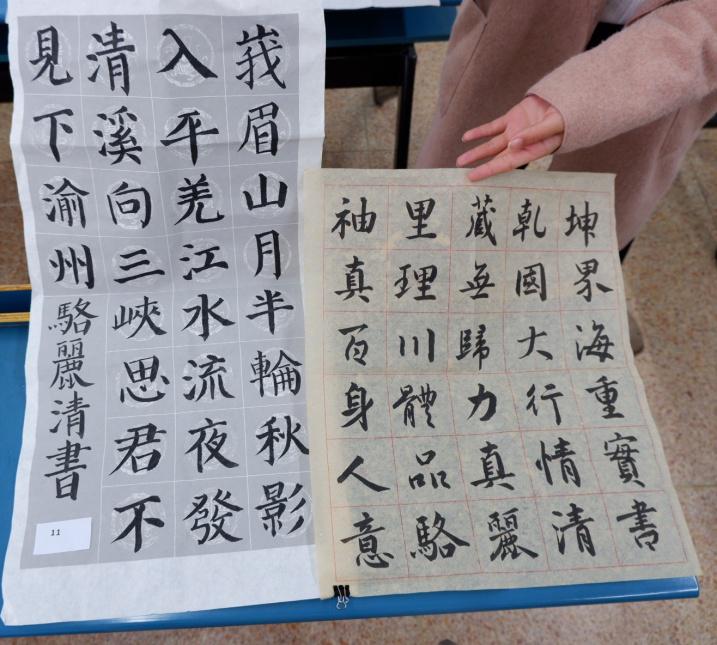 峩眉山月半輪秋影
入平羌江水流夜發
清溪向三峽思君不
見下渝州駱麗清書
11
袖里藏乾坤
真理無國界
百川歸大海
身體力行重
人品真情實
意駱麗清書